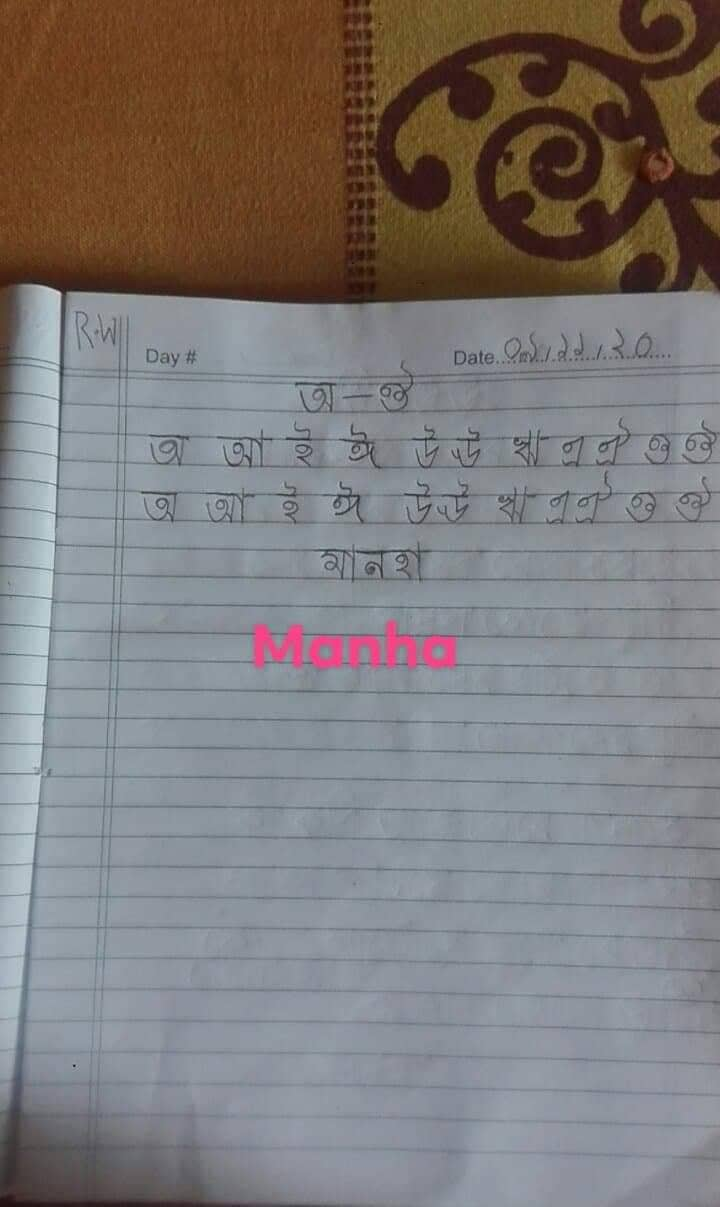 R.W
Day #
Date. ০৯.১১.২০
অ – ঔ
অ আ ই ঈ উ ঊ ঋ এ ঐ ও ঔ
অ আ ই ঈ উ ঊ ঋ এ ঐ ও ঔ
মানহা
Manha